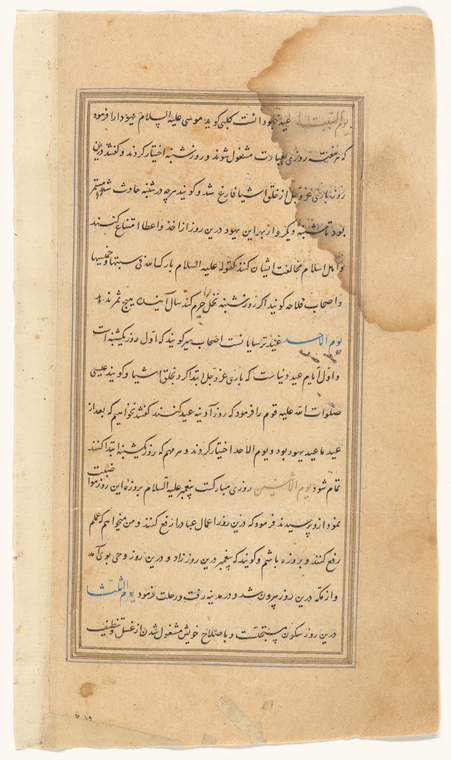 یوم السبت عید یهود است کلبی گوید موسی علیه السلام یهود را فرمود
که در هفته روزی بعبادت مشغول شوند و روز شنبه اختیار کردند و گفتند درین
روز باری عز و جل از خلق اشیا فارغ شد و گویند هرچه در شنبه حادث شود مستمر
بود تا شنبه دیگر و از بهر این یهود درین روز از اخذ و اعطا امتناع کنند
و اهل اسلام مخالفت ایشان کنند لقوله علیه السلام بارک الله فی سبتها و خمیسها
و اصحاب فلاحه گویند اگر روز شنبه نخل خرم کند سال آینده هیچ ثمر ندهد
یوم الاحد عید ترسایانست اصحاب سیر گویند که اول روز یکشنبه است
و اول ایام عید دنیاست که باری عز و جل ابتدا کرد بخلق اشیا و گویند عیسی
صلوات الله علیه قوم را فرمود که روز آدینه عید کنند گفتند نخواهیم که بعد از
عید ما عید یهود بود و یوم الاحد اختیار کردند و هر مهم که روز یکشنبه ابتدا کنند
تمام شود یوم الاثنین روزی مبارکست پیغمبر علیه السلام بروزه این روز مواظبت
نمود ازو پرسیدند فرمود که درین روز اعمال عباد را رفع کنند و من میخواهم که عملم
رفع کنند و بروزه باشم و گویند که پیغمبر درین روز زاد و درین روز وحی بوی آمد
و از مکه درین روز بیرون شد و در مدینه رفت و رحلت فرمود یوم الثلثا
درین روز سکون مستحبست و باصلاح خویش مشغول شدن از غسل و تنظیف